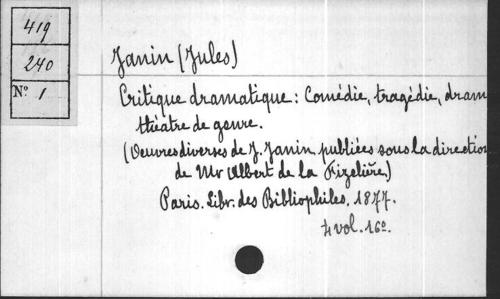 419
240
Nº 1
Janin (Jules)
Critique dramatique: Comédie, tragédie, dram
théâtre de genre.
(Oeuvres diverses de J. Janin publiées sous la direction
de Mr Albert de la Fizelière)
Paris. Libr. des Bibliophiles, 1877.
4 vol. 16º.